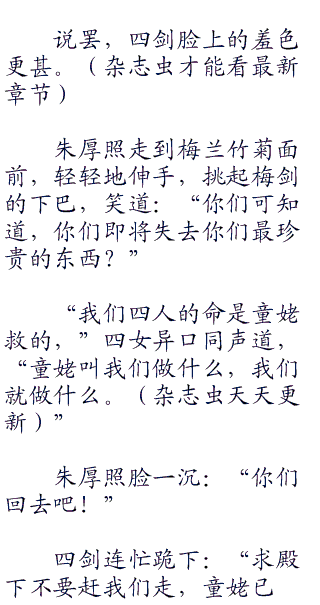 说罢，四剑脸上的羞色
更甚。（杂志虫才能看最新
章节）
朱厚照走到梅兰竹菊面
前，轻轻地伸手，挑起梅剑
的下巴，笑道：“你们可知
道，你们即将失去你们最珍
贵的东西？”
“我们四人的命是童姥
救的，”四女异口同声道，
“童姥叫我们做什么，我们
就做什么。（杂志虫天天更
新）”
朱厚照脸一沉：“你们
回去吧！”
四剑连忙跪下：“求殿
下不要赶我们走，童姥已